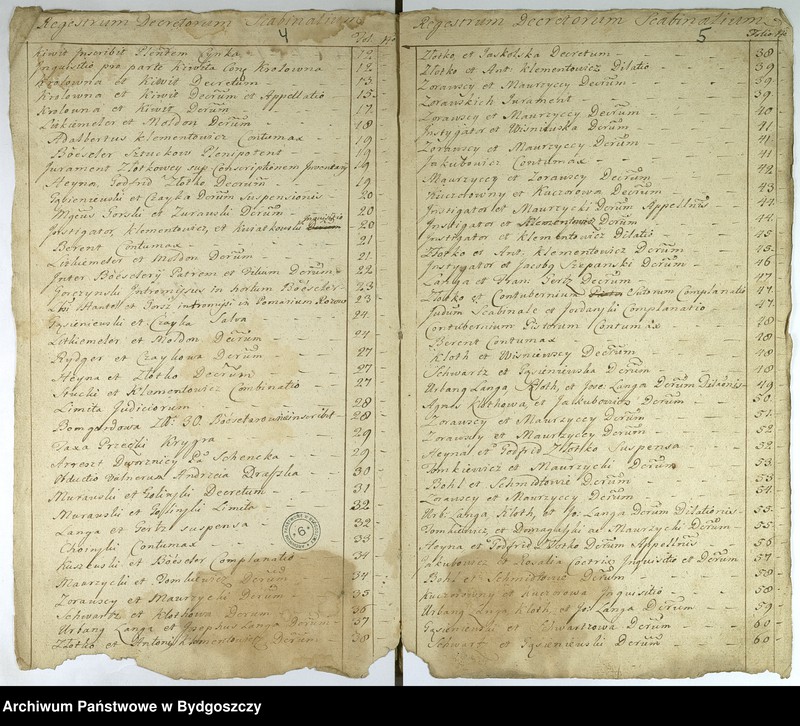 Regestrum Decretorum Scabinalium
4
Fol. No
Kiwit Inscribit Plendem 12
Inquisitio pro parte Krolowna 12
Krolowna et Kiwit Decretum 13
Krolowna et Kiwit Decrum et Appellatio 15
Krolowna et Kiwit Decrum 17
Litkiemeler et Moldon Decrum 18
Adalbertus Klementowicz Contumax 19
Böeseler Sztuckow Plenipotent 19
Jurament Złotkowey sup Conscriptionem Inventarÿ 19
Heyna, Godfrid Złotko Decrum 19
Gąsieniewski et Czayka Decrum Suspensionis 20
Gorski et Zurauski Decrum 20
Instigator, Klementowicz, et Kwiatkowski Inquisitio 20
Berent Contumax 21
Litkiemeler et Moldon Decrum 21
Inter Böeselery Patrem et Filium Decrum 22
Gorczynski Intromissus in hortum Böeseler 23
et intromissi in Pomarium 23
Gąsieniewski et Czayka Salva 24
Litkiemeler et Moldon Decrum 24
Rydger et Czaykowa Decrum 27
Heyna et Złotko Decrum 27
Stucki et Klementowicz Combinatio 27
Limita Judiciorum 28
30. inscribit 28
Taxa Przezki 29
Arreszt Schencka 29
Obductio Vulnerum Andrzeia Draszka 30
Murauski et Golinski Decretum 31
Murauski et Limita 32
Langa et Gertz suspensa 32
Contumax 33
et Böeseler Complanatio 34
Maurzycki et Decrum 34
Zorawscy et Maurzycki Decrum 35
Schwartz et Klothowa Decrum 36
Urbang Langa et Josephus Langa Decrum 37
Złotko et Antoni Klementowicz Decrum 38
Regestrum Decretorum Scabinalium
5
Folio No
Złotko et Jaskolska Decretum 38
Złotko et Ant. Klementowicz Dilatio 39
Zorawscy et Maurzyccy Decrum 39
Zorawskich Jurament 39
Zorawscy et Maurzyccy Decrum 40
Instygator et Wisniuska Decrum 41
Zorawscy et Maurzyccy Decrum 41
Jakubowicz Contumax 41
Maurzyccy et Zorawscy Decrum 42
Kuczorowny et Kuczorowa Decrum 43
Instigator et Maurzycki Decrum Appellnis 44
Instigator et Klementowic Decrum 44
Instigator et Klementowicz Dilatio 45
Złotko et Ant. Klementowicz Decrum 45
Instygator et Jacobg Szepanski Decrum 46
Langa et Fran: Gertz Decrum 47
Złotko et Contubernium Sutorum Complanatio 47
Judum Scabinale et Jordanski Complanatio 47
Contubernium Pistorum Contumax 48
Berent Contumax 48
Kloth et Wisniewscy Decrum 48
Schwartz et Gąsieniewska Decrum 48
Urbang Langa Kloth, et Jose: Langa Decrum Dilaōnis 49
Agnes Klothowa, et Jakubowicz Decrum 50
Zorawscy et Maurzyccy Decrum 51
Zorawscy et Maurzyccy Decrum 52
Heyna et Godfrid Złotko Suspensa 52
Tomkiewicz et Maurzycki Decrum 53
Bohl et Schmidtowic Decrum 53
Zorawscy et Maurzyccy Decrum 54
Urb. Langa Kloth, et Jo: Langa Decrum Dilationis 55
Tomkiewicz, et Domagalski ac Maurzycki Decrum 55
Heyna et Godfrid Złotko Decrum Appellnis 56
Jakubowicz et Rosalia Inquisitio et Decrum 57
Bohl et Schmitlowic Decrum 58
Kuczorowny et Kuczorowa Inquisitio 58
Urbang Langa, Kloth, et Jos: Langa Decrum 59
Gąsieniewski et Schwartzowa Decrum 60
Schwart et Gąsieniewski Decrum 60
6
Archiwum Państwowe w Bydgoszczy